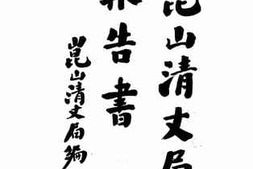 崑山清丈局
報告書
崑山清丈局編